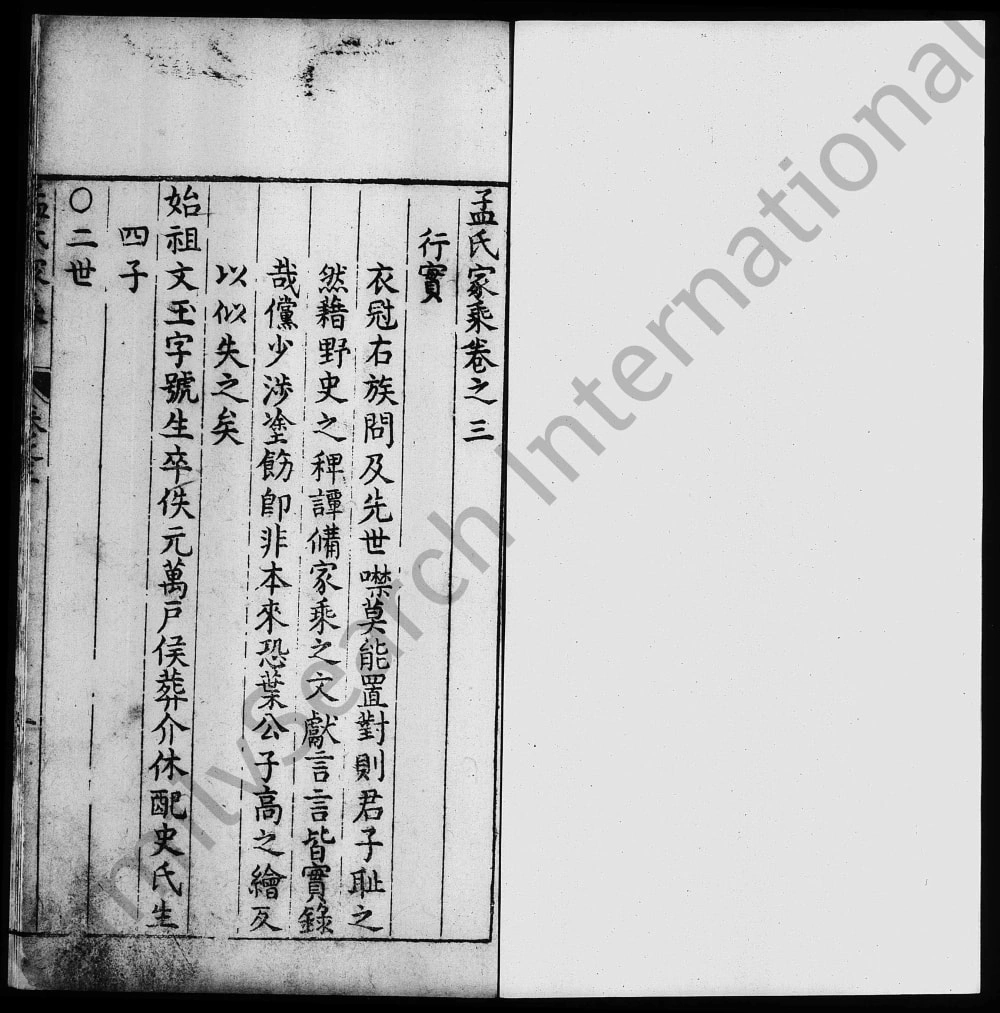 孟氏家乘卷之三
行實
衣冠右族問及先世噤莫能置對則君子耻之
然藉野史之稗譚俻家乘之文獻言言皆實錄
哉儻少涉塗飭卽非本來恐葉公子高之繪反
以似失之矣
始祖文玉字號生卒佚元萬戸侯葬介休配史氏生
四子
○二世
孟氏家乘 卷之三
FamilySearch International